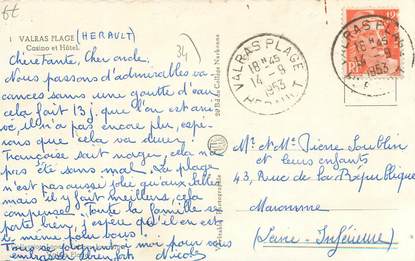 1 VALRAS PLAGE (HERAULT)
Casino et Hôtel
34
Chère tante, Cher oncle.
Nous passons d'admirables va
cances sans une goutte d'eau
cela fait 13 j. que l'on est arri
vé il n'a pas encore plu, espé-
rons que cela va durer.
Françoise sait nager, cela n'a
pas été sans mal. La plage
n'est pas aussi jolie qu'aux
mais il y fait meilleurs, cela
compense. Toute la famille se
porte bien, j'espère qu'il en est
de même pour vous.
Tous se joignent à moi pour vous
embrasser bien fort Nicole
Narbonne
VALRAS PLAGE
18 H 45
14 - 9
1953
HERAULT
VALRAS PLAGE
16 H 45
14
1953
Mr et Mme Pierre Loublin
et leurs enfants
43, Rue de la République
Maromme
(Seine-Inférieure)